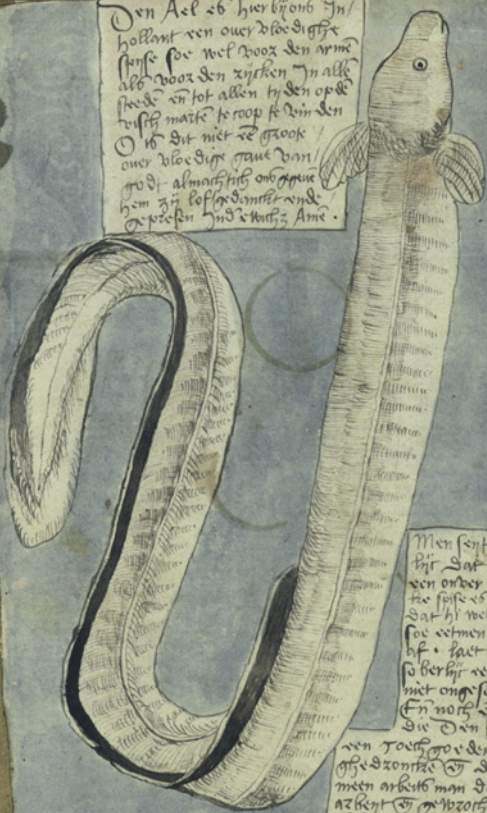 Den Ael es hier bijons In/
Hollant een over vloedighe
spise soe wel voor den armē
als voor den rijcken In allē
steedē eñ tot allen tijden opdē
visch martē te coop te vinden
O is dit niet eē groote
over vloedige gave van/
godt almachtich ons gegeuē
hem zij lof gedanckt ende
gepresen Inde ewich3 Amē.
Men seijt
lijc dat
een onver
te spise es
dat hi wel
soe eetmen
af. laet
so berlijc ee
niet ongeso
Eñ noch ē
die Den
een toech goeden
ghedronckē eñ d
meen arbeits man d
arbent eñ gewroch